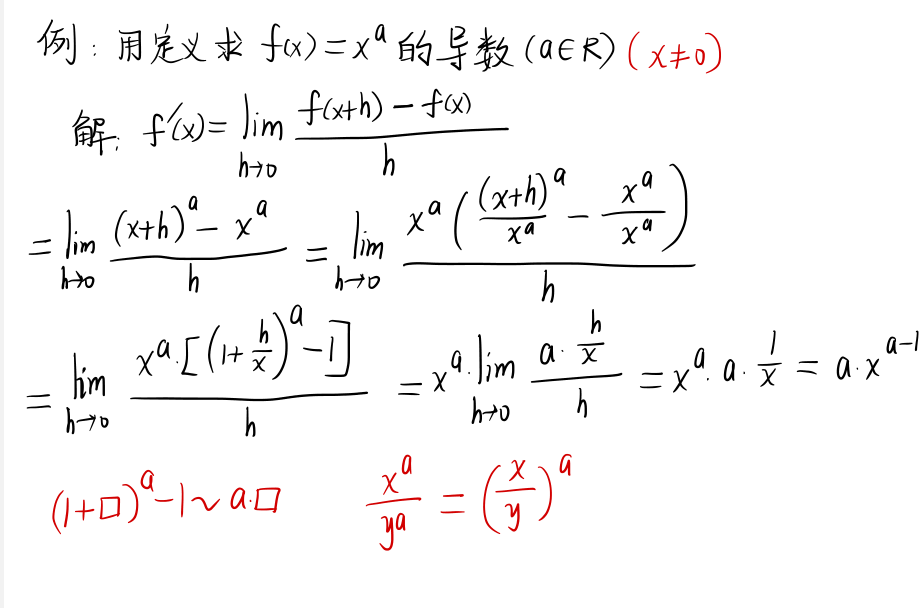 例：用定义求 f(x)=x^a 的导数 (a∈R) (x≠0)
解：f'(x)=lim_{h→0} \frac{f(x+h)-f(x)}{h}
=lim_{h→0} \frac{(x+h)^a-x^a}{h} =lim_{h→0} \frac{x^a(\frac{(x+h)^a}{x^a}-\frac{x^a}{x^a})}{h}
=lim_{h→0} \frac{x^a·[(1+\frac{h}{x})^a-1]}{h} =x^a·lim_{h→0} \frac{a·\frac{h}{x}}{h} =x^a·a·\frac{1}{x}=a·x^{a-1}
(1+□)^a-1~a·□ \frac{x^a}{y^a}=(\frac{x}{y})^a